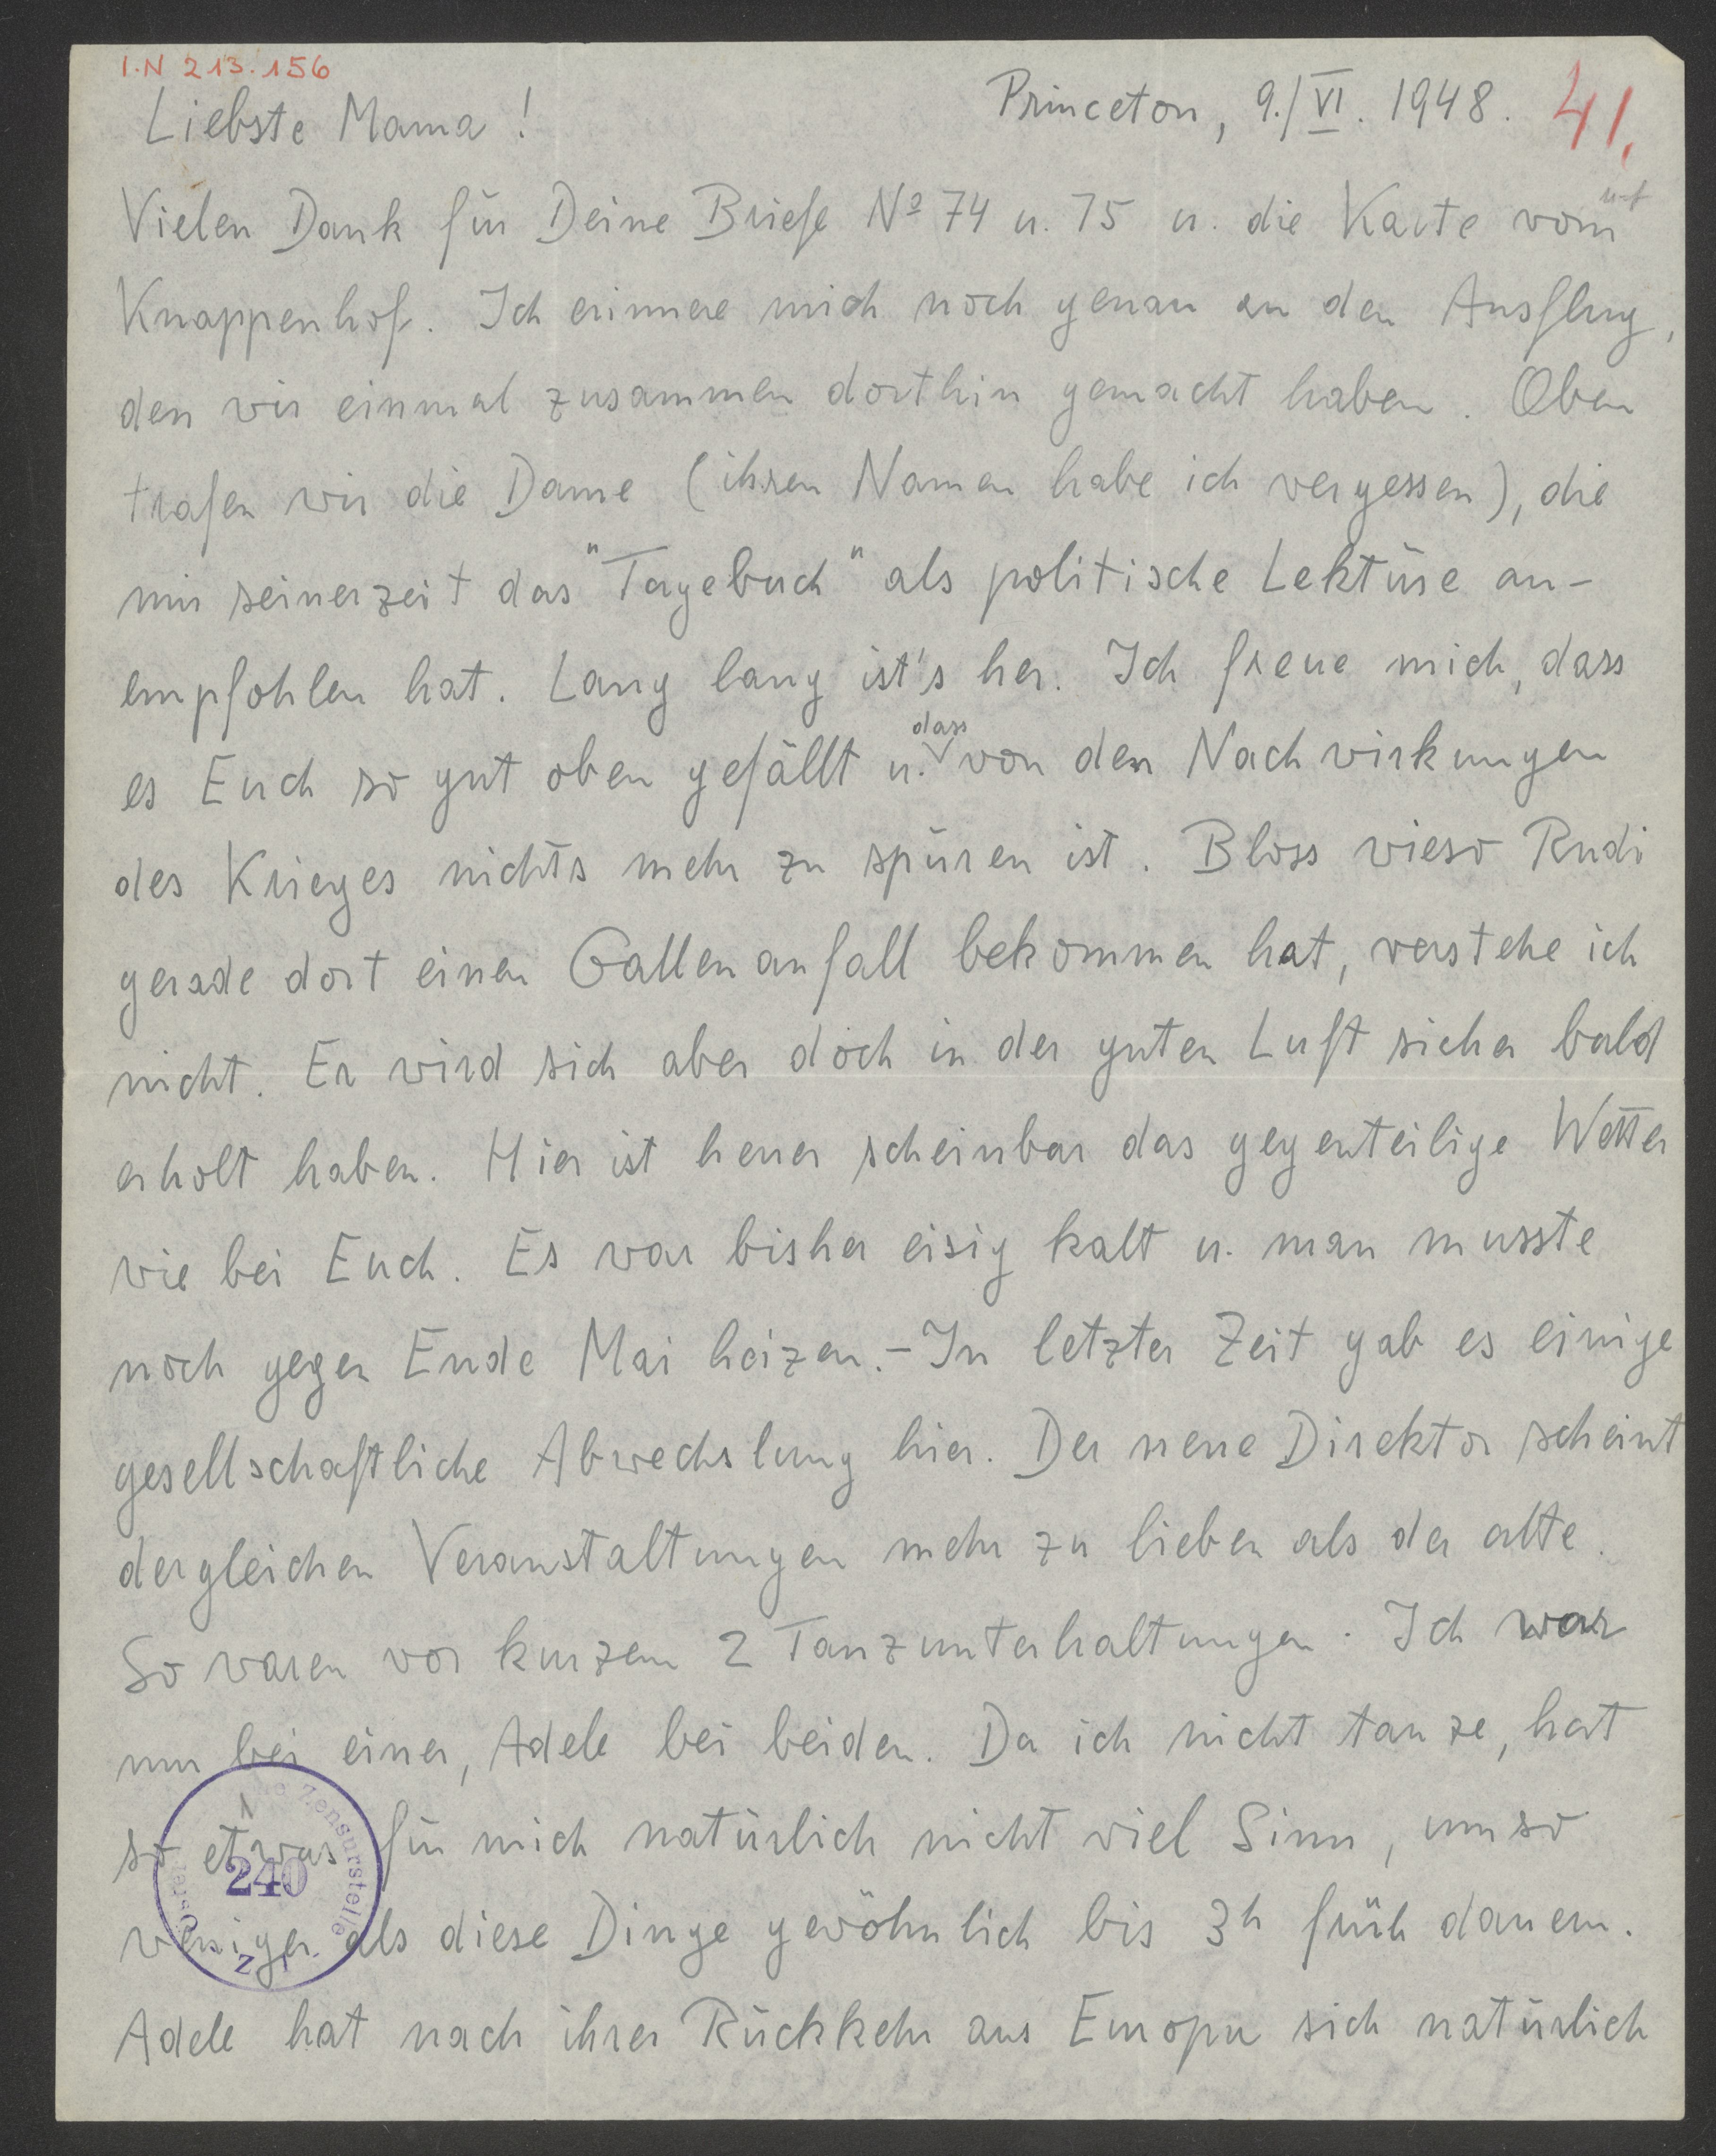 I.N 213.156
Liebste Mama! Princeton, 9./VI. 1948. 41.
Vielen Dank für Deine Briefe Nº 74 u. 75 u. die Karte vom
Knappenhof. Ich erinnere mich noch genau an den Ausflug,
den wir einmal zusammen dorthin gemacht haben. Oben
trafen wir die Dame (ihren Namen habe ich vergessen), die
mir seinerzeit das "Tagebuch" als politische Lektüre an-
empfohlen hat. Lang lang ist's her. Ich freue mich, dass
es Euch so gut oben gefällt u. dass von den Nachwirkungen
des Krieges nichts mehr zu spüren ist. Bloss wieso Rudi
gerade dort einen Gallenanfall bekommen hat, verstehe ich
nicht. Er wird sich aber doch in der guten Luft sicher bald
erholt haben. Hier ist heuer scheinbar das gegenteilige Wetter
wie bei Euch. Es war bisher eisig kalt u. man musste
noch gegen Ende Mai heizen.– In letzter Zeit gab es einige
gesellschaftliche Abwechslung hier. Der neue Direktor scheint
dergleichen Veranstaltungen mehr zu lieben als der alte.
So waren vor kurzem 2 Tanzunterhaltungen. Ich war
nur bei einer, Adele bei beiden. Da ich nicht tanze, hat
so etwas für mich natürlich nicht viel Sinn, umso
weniger als diese Dinge gewöhnlich bis 3h früh dauern.
Adele hat nach ihrer Rückkehr aus Europa sich natürlich
Zensurstelle
240